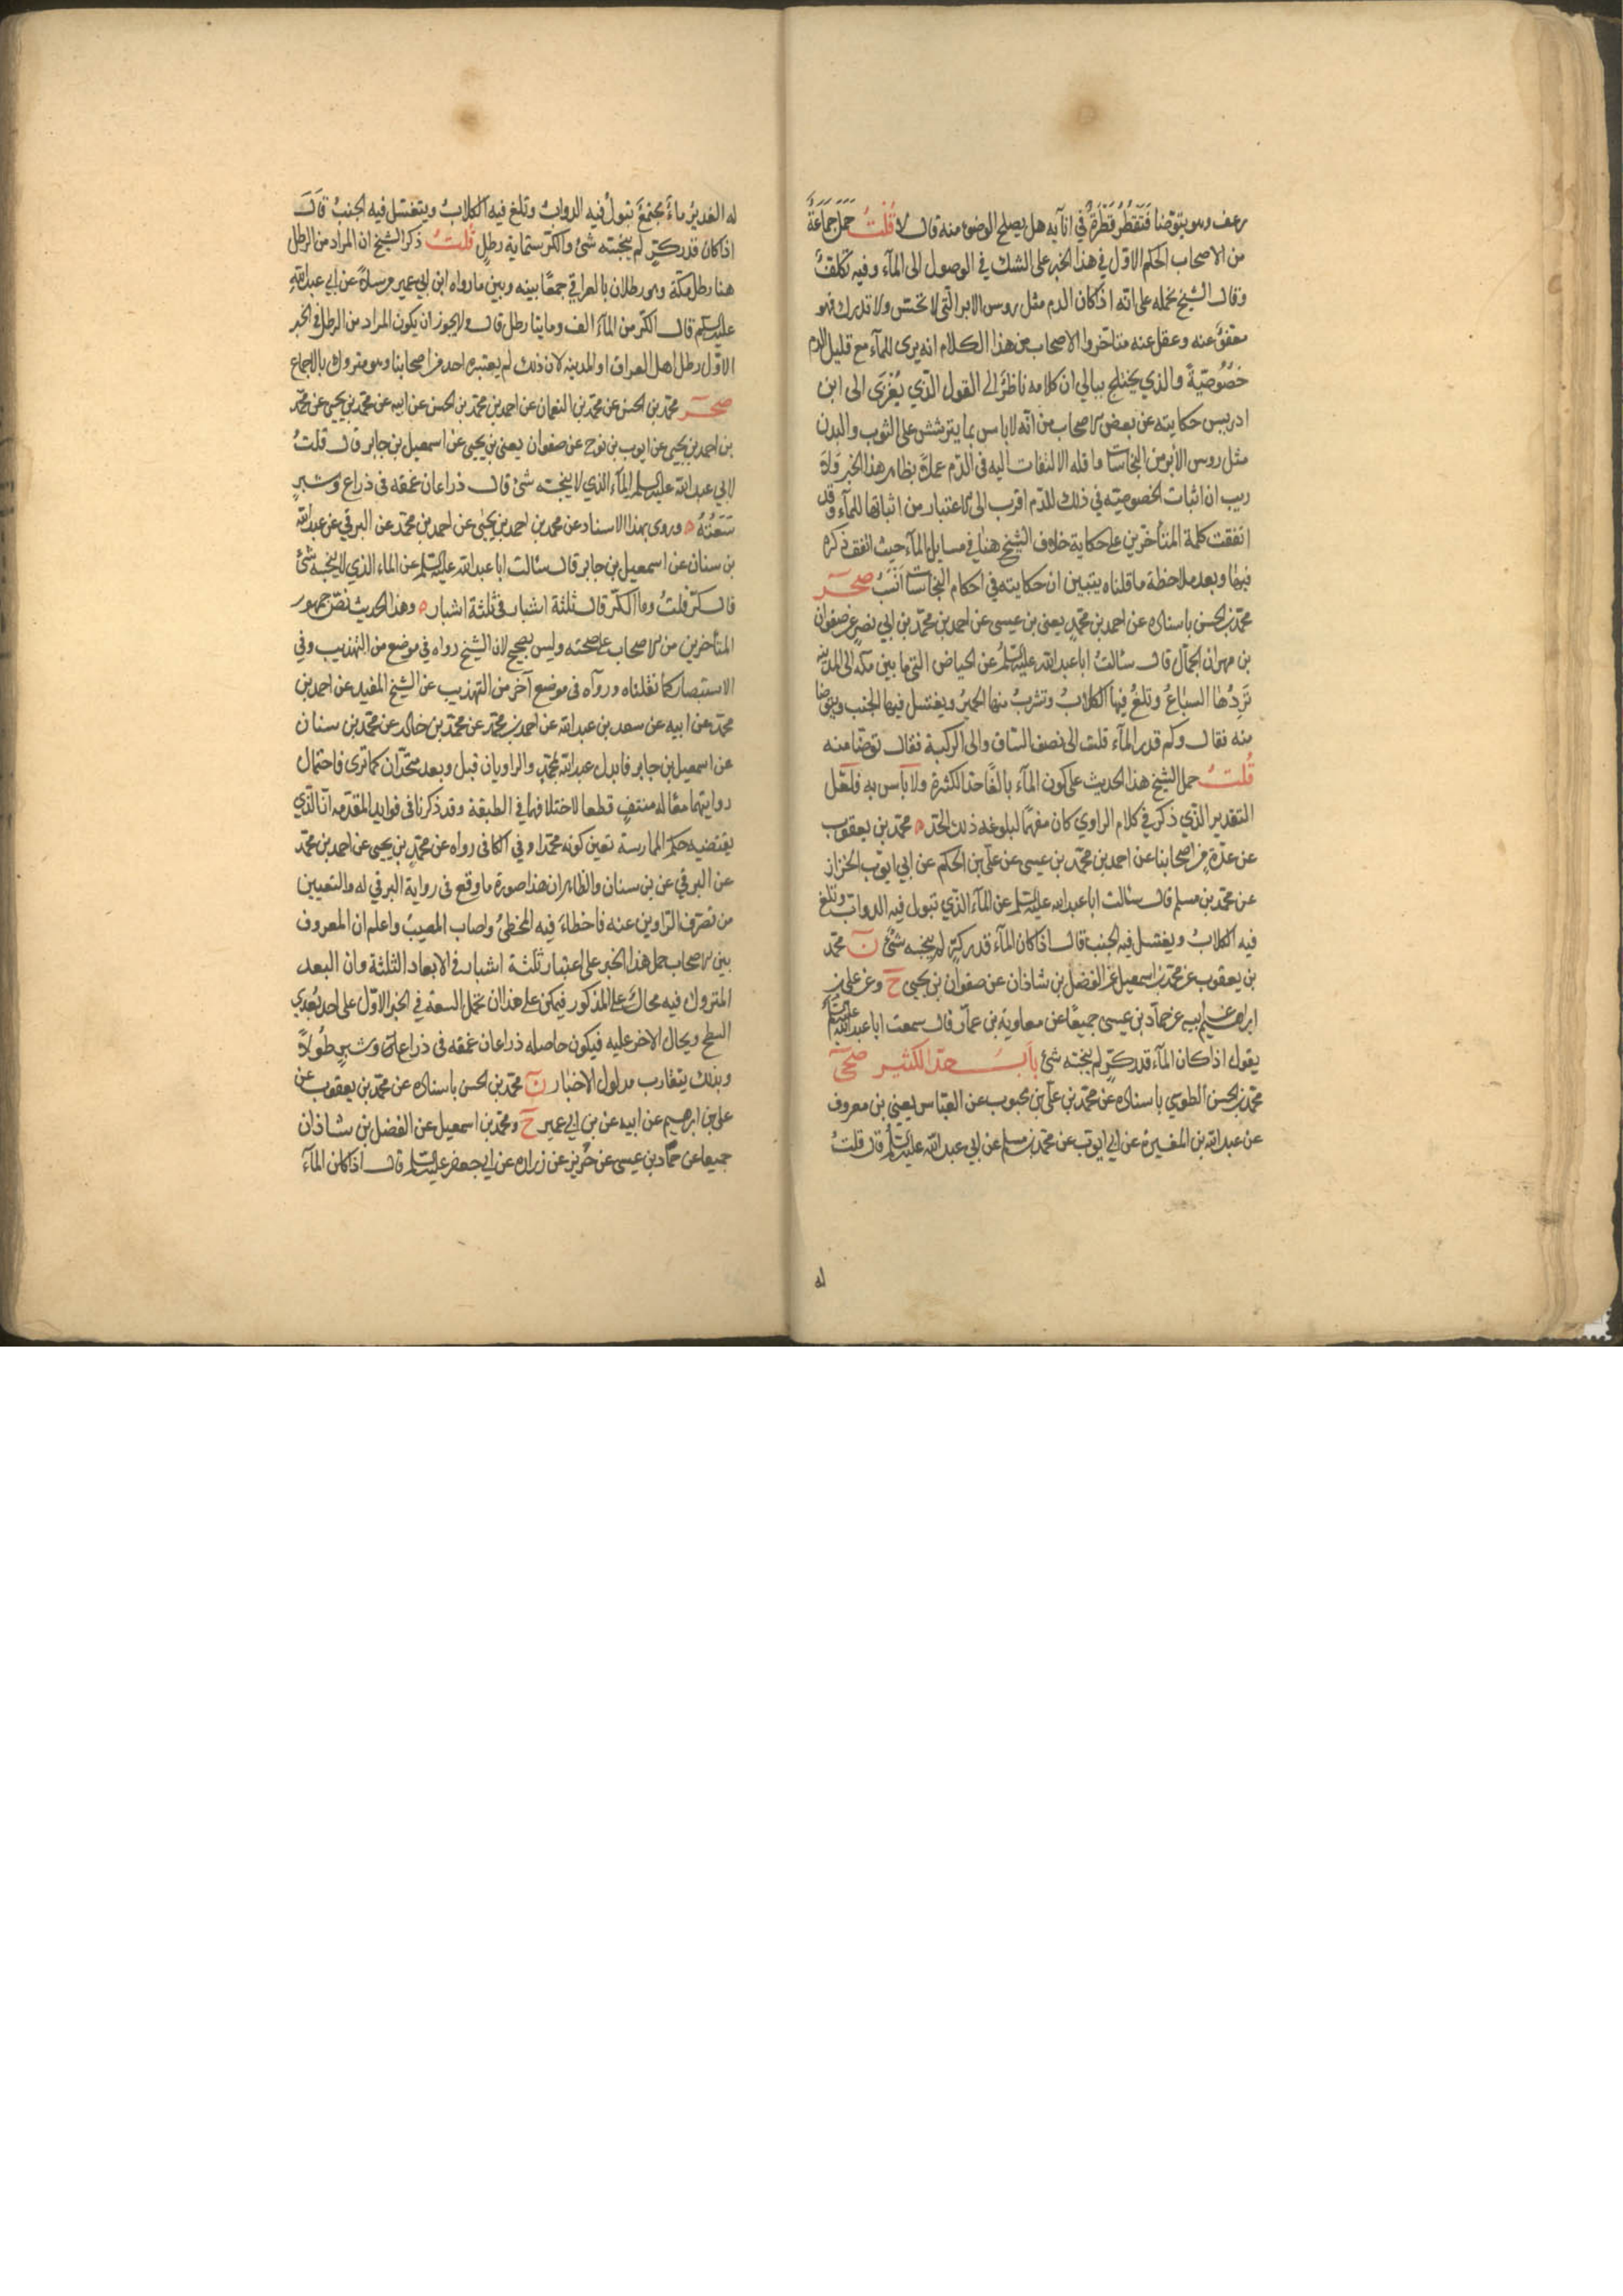 رعف وهو يتوضا فتقطر قطرة في انآيه هل يصلح الوضوء منه قال لا قلت حمل جماعة
من الاصحاب الحكم الاول في هذا الخبر على الشك في الوصول الى المآء وفيه تكلف
وقال الشيخ نحمله على انه اذا كان الدم مثل روس الابر التي لا تحس ولا تدرك فهو
معفو عنه وعقل عنه متاخروا الاصحاب من هذا الكلام انه يرى للمآء مع قليل الدم
خصوصية والذي يختلج ببالي ان كلامه ناظر الى القول الذي يعزى الى ابن
ادريس حكايته عن بعض الاصحاب من انه لا باس بما يترشش على الثوب والبدن
مثل روس الابر من النجاسات وما قله الالتفات اليه في الدم عملا بظاهر هذا الخبر ولا
ريب ان اثبات الخصوصية في ذلك للدم اقرب الى الاعتبار من اثباتها للمآء وقد
اتفقت كلمة المتأخرين على حكاية خلاف الشيخ هنا في مسايل المآء حيث اتفق ذكره
فيها وبعد ملاحظة ما قلناه يتبين ان حكايته في احكام النجاسات انسب صحر
محمد بن الحسن باسناده عن احمد بن محمد يعني بن عيسى عن احمد بن محمد بن ابي نصر عن صفوان
بن مهران الجمال قال سالت ابا عبد الله عليه السلم عن الحياض التي ما بين مكة الى المدينة
تردها السباع وتلغ فيها الكلاب وتشرب منها الحمير ويغتسل فيها الجنب ويتوضا
منه فقال وكم قدر المآء قلت الى نصف الساق والى الركبة فقال توضا منه
قلت حمل الشيخ هذا الحديث على كون المآء بالغا حد الكثرة ولا باس به فلعل
التقدير الذي ذكر في كلام الراوي كان مفهما لبلوغه ذلك الحد ه محمد بن يعقوب
عن عدة من اصحابنا عن احمد بن محمد بن عيسى عن علي بن الحكم عن ابي ايوب الخزاز
عن محمد بن مسلم قال سالت ابا عبد الله عليه السلم عن المآء الذي تبول فيه الدواب وتلغ
فيه الكلاب ويغتسل فيه الجنب قال اذا كان المآء قدر كر لم ينجسه شئ ن محمد
بن يعقوب عن محمد بن اسمعيل عن الفضل بن شاذان عن صفوان بن يحيى ح وعن علي بن
ابراهيم عن ابيه عن حماد بن عيسى جميعا عن معاوية بن عمار قال سمعت ابا عبد الله عليه السلم
يقول اذا كان المآء قدر كر لم ينجسه شئ باب حد الكثير صحى
محمد بن الحسن الطوسي باسناده عن محمد بن علي بن محبوب عن العباس يعني بن معروف
عن عبد الله بن المغيرة عن ابي ايوب عن محمد بن مسلم عن ابي عبد الله عليه السلم قال قلت
له
له الغدير ماء مجتمع تبول فيه الدواب وتلغ فيه الكلاب ويتغتسل فيه الجنب قال
اذا كان قدر كر لم ينجسه شئ والكر ستماية رطل قلت ذكر الشيخ ان المراد من الرطل
هنا رطل مكة وهو رطلان بالعراقي جمعا بينه وبين ما رواه ابن ابي عمير مرسلا عن ابي عبد الله
عليه السلم قال الكر من المآء الف ومايتا رطل قال ولا يجوز ان يكون المراد من الرطل في الخبر
الاول رطل اهل العراق او المدينه لان ذلك لم يعتبره احد من اصحابنا وهو متروك بالاجماع
صحر محمد بن الحسن عن محمد بن النعمان عن احمد بن محمد بن الحسن عن ابيه عن محمد بن يحيى عن محمد
بن احمد بن يحيى عن ايوب بن نوح عن صفوان يعني بن يحيى عن اسمعيل بن جابر قال قلت
لابي عبد الله عليه السلم المآء الذي لا ينجسه شئ قال ذراعان عمقه في ذراع وشبر
سعته ه وروى بهذا الاسناد عن محمد بن احمد بن يحيى عن احمد بن محمد عن البرقي عن عبد الله
بن سنان عن اسمعيل بن جابر قال سالت ابا عبد الله عليه السلم عن الماء الذي لا ينجسه شئ
قال كر قلت وما الكر قال ثلثة اشبار في ثلثة اشبار ه وهذا الحديث نص جمهور
المتأخرين من الاصحاب على صحته وليس بصحيح لان الشيخ رواه في موضع من التهذيب وفي
الاستبصار كما نقلناه ورواه في موضع آخر من التهذيب عن الشيخ المفيد عن احمد بن
محمد عن ابيه عن سعد بن عبد الله عن احمد بن محمد عن محمد بن خالد عن محمد بن سنان
عن اسمعيل بن جابر فابدل عبد الله بمحمد والراويان قبل وبعد متحدان كما ترى فاحتمال
روايتهما معا له منتف قطعا لاختلافهما في الطبقة وقد ذكرنا في فوايد المقدمه ان الذي
يقتضيه حكم الممارسة تعين كونه محمدا وفي الكافي رواه عن محمد بن يحيى عن احمد بن محمد
عن البرقي عن بن سنان والظاهر ان هذا صورة ما وقع في رواية البرقي له والتعيين
من تصرف الراوين عنه فاخطاء فيه المخطئ واصاب المصيب واعلم ان المعروف
بين الاصحاب حمل هذا الخبر على اعتبار ثلثة اشبار في الابعاد الثلثة وان البعد
المتروك فيه محال على المذكور فيمكن على هذا ان تحمل السعة في الخبر الاول على احد بعدي
السطح ويحال الاخر عليه فيكون حاصله ذراعان عمقه في ذراع وشبر طولا
وبذلك يتقارب مدلول الاخبار ن محمد بن الحسن باسناده عن محمد بن يعقوب عن
علي بن ابرهيم عن ابيه عن بن ابي عمير ح ومحمد بن اسمعيل عن الفضل بن شاذان
جميعا عن حماد بن عيسى عن حريز عن زراره عن ابي جعفر عليه السلم قال اذا كان المآء